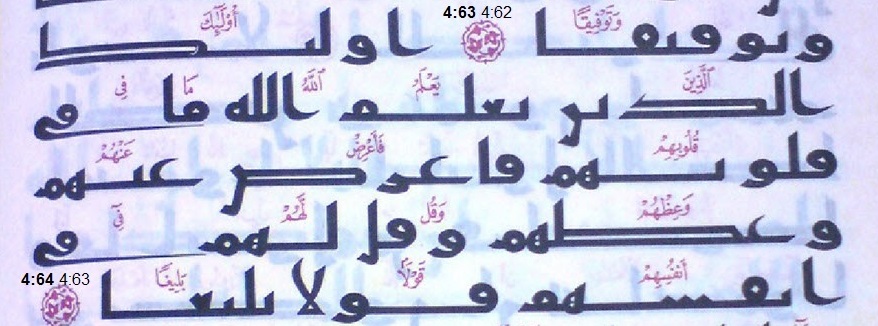 وَتَوْفِيقًا 4:63 4:62 أُوْلَٰٓئِكَ
وتوفيقا اوليك
ٱلَّذِينَ يَعْلَمُ ٱللَّهُ مَا فِى
الذين يعلم الله ما في
قُلُوبِهِمْ فَأَعْرِضْ عَنْهُمْ
قلوبهم فاعرض عنهم
وَعِظْهُمْ وَقُل لَّهُمْ فِىٓ
وعظهم وقل لهم في
أَنفُسِهِمْ قَوْلًۢا بَلِيغًا 4:64 4:63
انفسهم قولا بليغا